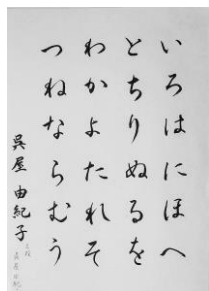 いろはにほへ
とちりぬるを
わかよたれそ
つねならむう
呉屋由紀子